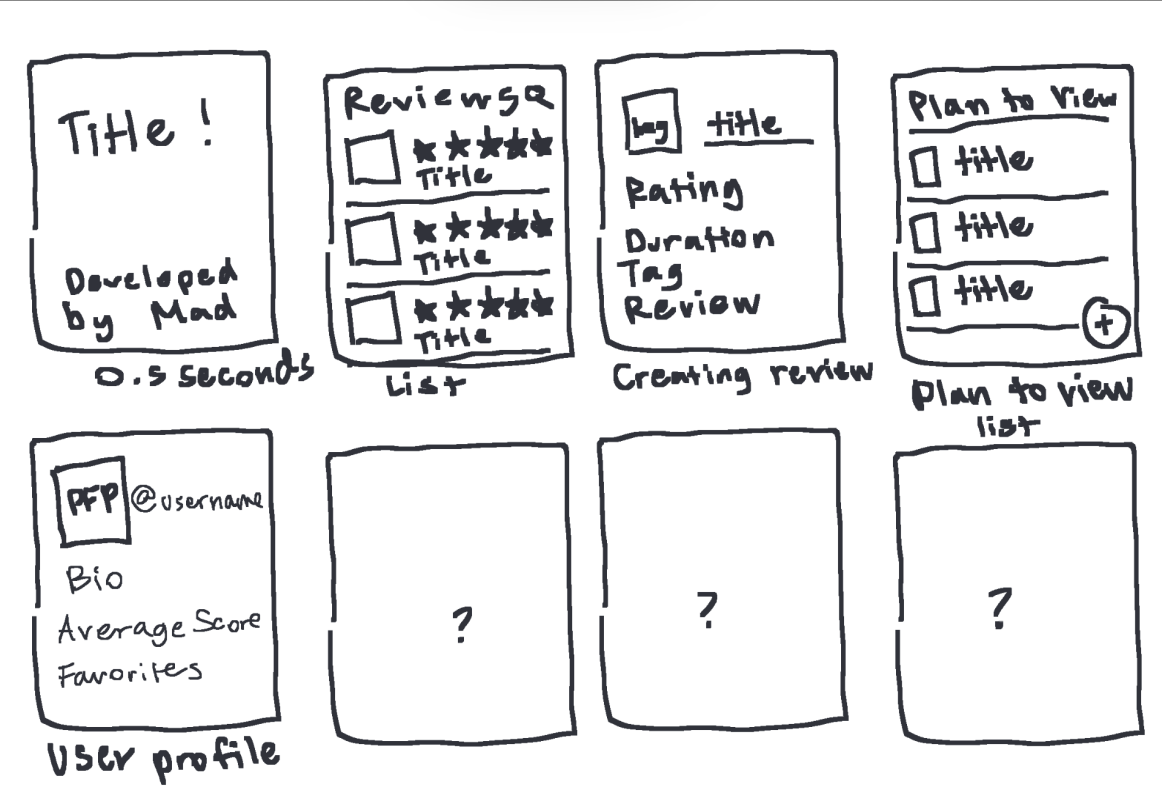 Title!
Developed
by Mad
0.5 seconds
Reviews
Title
Title
Title
List
title
Rating
Duration
Tag
Review
Creating review
Plan to View
title
title
title
+
Plan to view
list
PFP @username
Bio
Average Score
Favorites
User profile
?
?
?